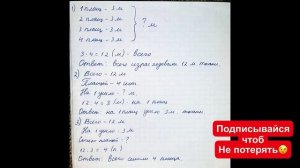 1) 1 плащ - 3 м
2 плащ - 3 м
3 плащ - 3 м
4 плащ - 3 м
? м
3 · 4 = 12 (м) - всего
Ответ: всего израсходовали 12 м ткани.
2) Всего - 12 м
Плащей - 4 шт.
На 1 плащ - ? м.
12 : 4 = 3 (м) на 1 плащ
Ответ: на 1 плащ ушло 3 м. ткани.
3) Всего - 12 м
На 1 ушло - 3 м.
плащей - ?
12 : 3 = 4 (п)
Ответ: Всего сшили 4 плаща.
Подписывайся
чтоб
Не потерять